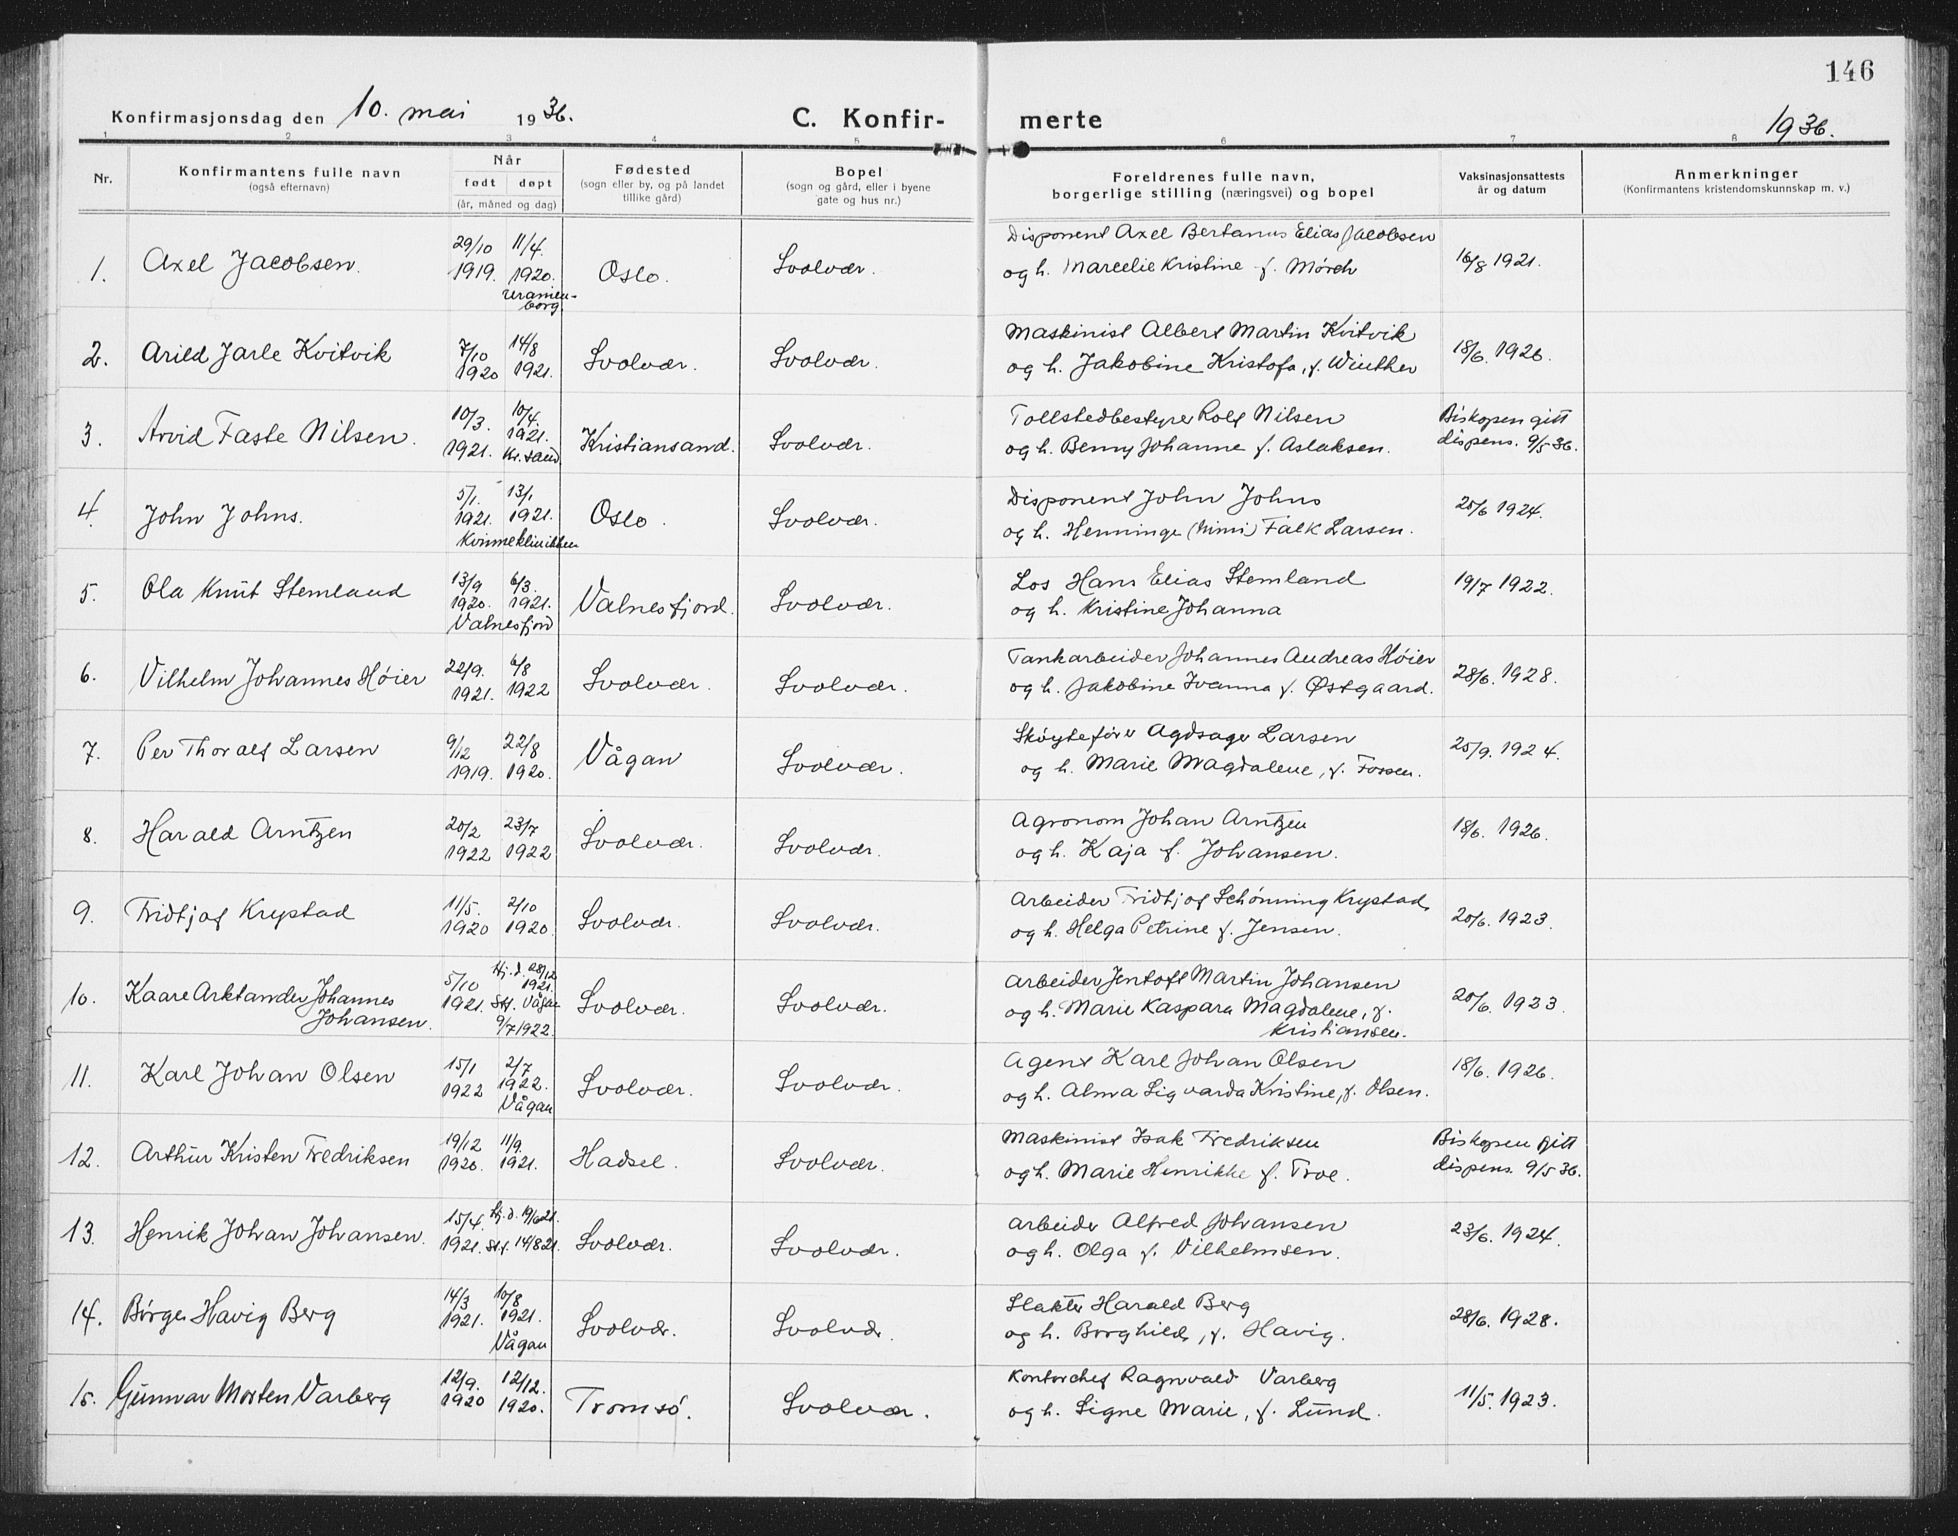 146
Konfirmasjonsdag den 10. mai 1936. C. Konfir- merte 1936.
1 2 3 4 5 6 7 8
Nr. Konfirmantens fulle navn (også efternavn) Når født døpt (år, måned og dag) Fødested (sogn eller by, og på landet tillike gård) Bopel (sogn og gård, eller i byene gate og hus nr.) Foreldrenes fulle navn, borgerlige stilling (næringsvei) og bopel Vaksinasjonsattests år og datum Anmerkninger (Konfirmantens kristendomskunnskap m. v.)
1. Axel Jacobsen. 29/10 1919. 11/4. 1920. Uranien-borg. Oslo. Svolvær. Disponent Axel Bertanus Elias Jacobsen
og h. Marcelie Kristine f. Mørch 16/8 1921.
2. Arild Jarle Kvitvik 7/10 1920 14/8 1921. Svolvær. Svolvær. Maskinist Albert Martin Kvitvik
og h. Jakobine Kristofa, f. Winther 18/6. 1926.
3. Arvid Faste Nilsen. 10/3. 1921. 10/4. 1921. Kr.sand. Kristiansand. Svolvær. Tollstedbestyrer Rolf Nilsen
og h. Benny Johanne f. Aslaksen. Biskopen gitt dispens. 9/5 36.
4. John Johns. 5/1. 1921. 13/1 1921. Kvinneklinikken Oslo. Svolvær. Disponent John Johns
og h. Henninge (Mimi) Falk Larsen. 20/6 1924.
5. Ola Knut Stemland 13/9 1920. 6/3. 1921. Valnesfjord Valnesfjord. Svolvær. Los Hans Elias Stemland
og h. Kristine Johanna 19/7 1922.
6. Vilhelm Johannes Høier 22/9. 1921. 6/8 1922 Svolvær. Svolvær. Tankarbeider Johannes Andreas Høier
og h. Jakobine Ivanna f. Østgaard. 28/6. 1928.
7. Per Thoralf Larsen 9/12 1919. 22/8 1920. Vågan Svolvær. Skøytefører Agdsager Larsen
og h. Marie Magdalene, f. Fossen. 25/9. 1924.
8. Harald Arntzen 20/2 1922 23/7 1922 Svolvær. Svolvær. Agronom Johan Arntzen
og h. Kaja f. Johansen. 18/6. 1926.
9. Fridtjof Krystad 11/5. 1920 2/10 1920. Svolvær. Svolvær. Arbeider Fridtjof Schønning Krystad,
og h. Helga Petrine f. Jensen. 20/6. 1923.
10. Kaare Arktander Johannes Johansen. 5/10 1921. Hj.d. 28/12 1921. Stf. Vågan 9/7 1922. Svolvær. Svolvær. Arbeider Jentoft Martin Johansen
og h. Marie Kaspara Magdalene, f. Kristiansen. 20/6. 1923.
11. Karl Johan Olsen 15/1 1922 2/7 1922. Vågan Svolvær. Svolvær. Agent Karl Johan Olsen
og h. Alma Sigvarda Kristine, f. Olsen. 18/6. 1926.
12. Arthur Kristen Fredriksen 19/12 1920. 11/9. 1921. Hadsel. Svolvær. Maskinist Isak Fredriksen
og h. Marie Henrikke f. Troe. Biskopen gitt dispens. 9/5 36.
13. Henrik Johan Johansen. 15/4. 1921. Hj.d. 19/6 21. Stf. 14/8 21. Svolvær. Svolvær. Arbeider Alfred Johansen
og h. Olga f. Vilhelmsen. 23/6. 1924.
14. Børge Havig Berg 14/3 1921. 10/8 1921. Vågan Svolvær. Svolvær. Slakter Harald Berg
og h. Borghild, f. Havig. 28/6. 1928.
15. Gunnar Morten Varberg 12/9. 1920 12/12. 1920. Tromsø. Svolvær. Kontorchef Ragnvald Varberg
og h. Signe Marie, f. Lund. 11/5. 1923.